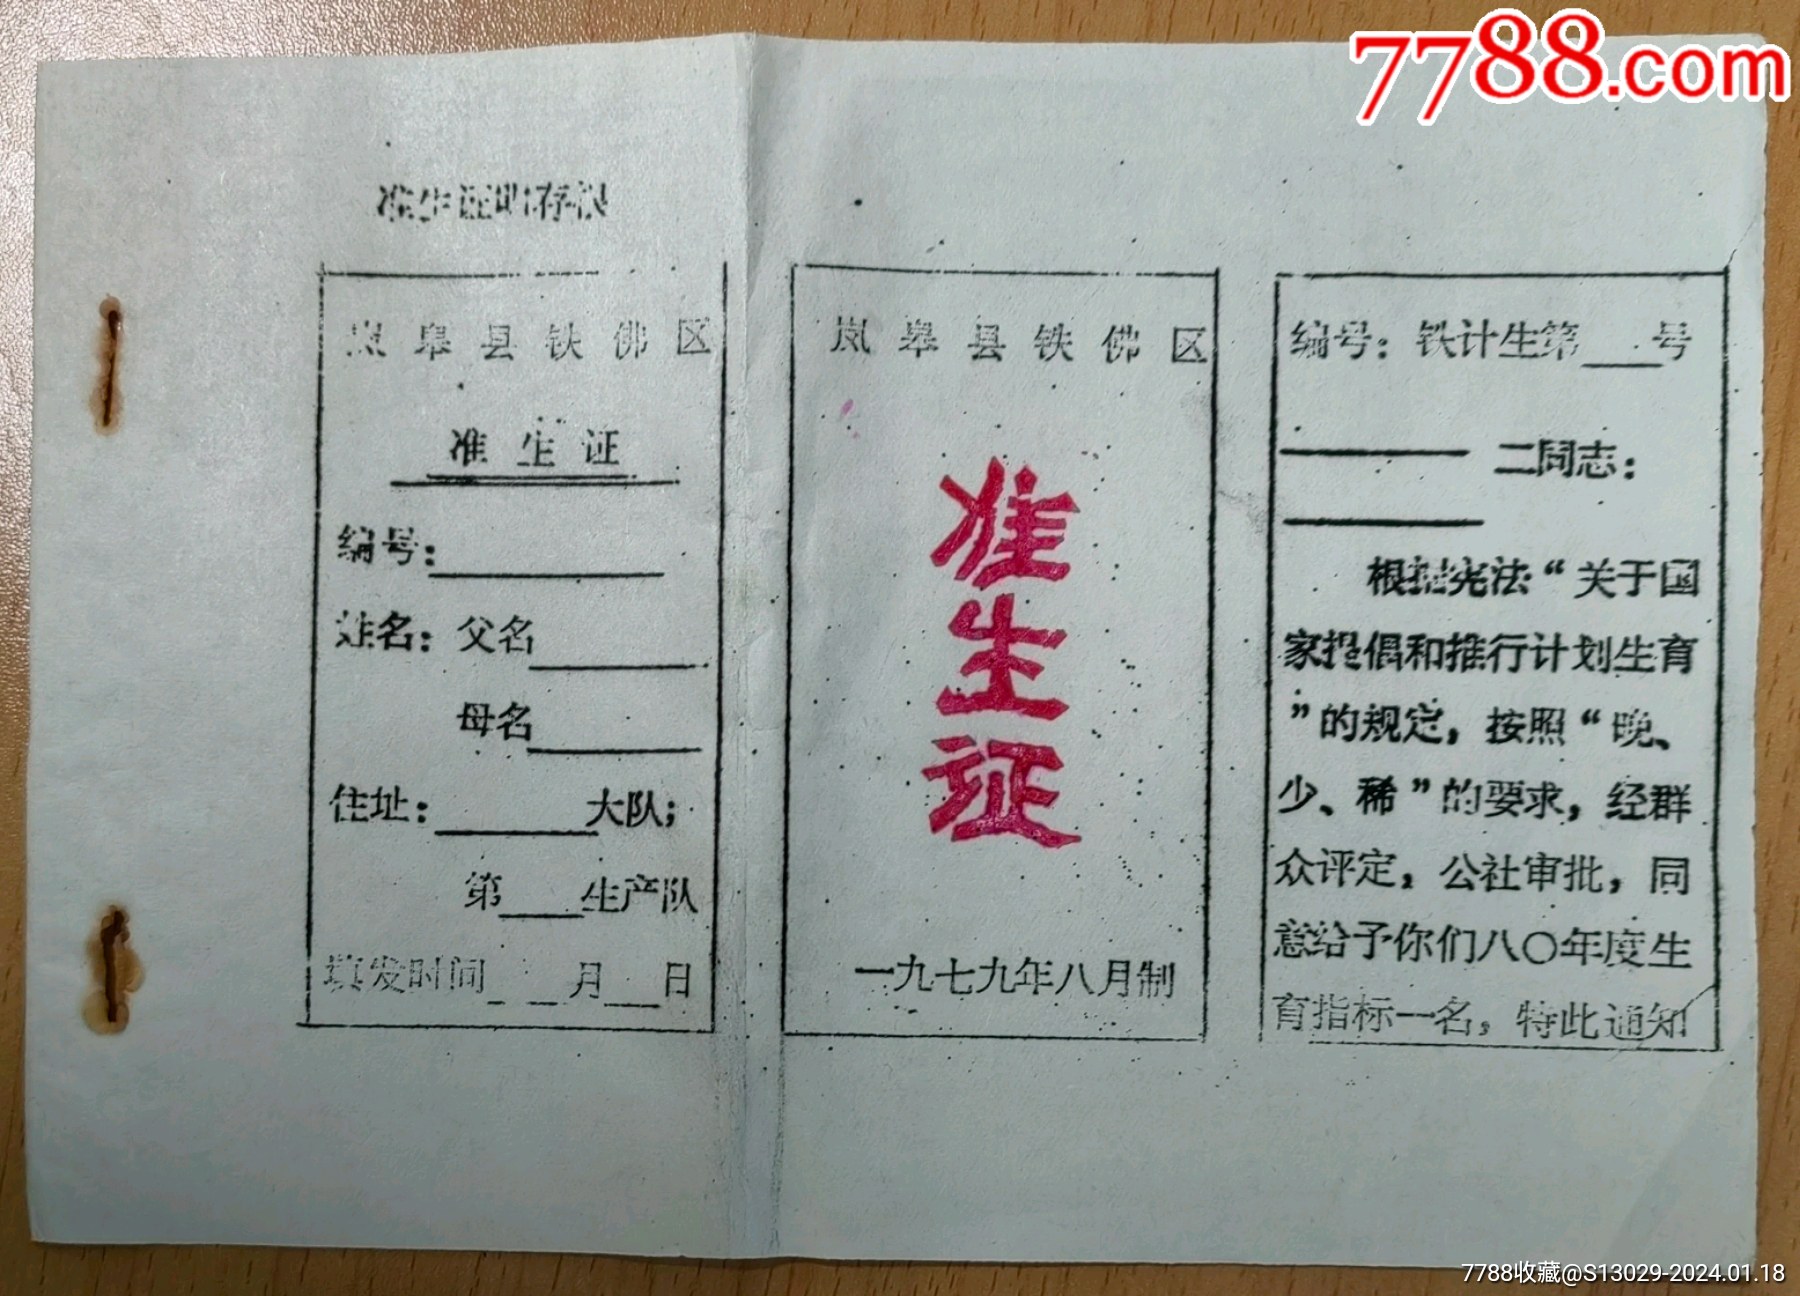 7788.com
准生证明存根
岚皋县铁佛区
准生证
编号:
姓名:父名
母名
住址:大队;
第 生产队
填发时间 月 日
岚皋县铁佛区
准生证
一九七九年八月制
编号:铁计生第 号
二同志:
根据宪法“关于国
家提倡和推行计划生育
”的规定,按照“晚、
少、稀”的要求,经群
众评定,公社审批,同
意给予你们八〇年度生
育指标一名,特此通知
7788收藏@S13029-2024.01.18